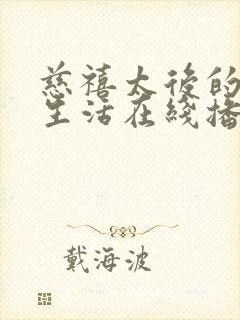 慈禧太後的
生活在綫播
戴海波